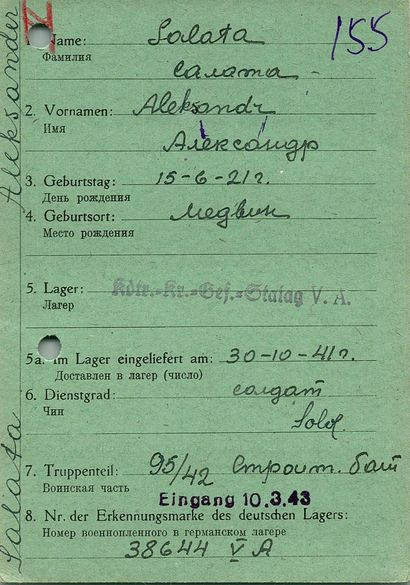 155
1. Name: Salata
Фамилия
салата
2. Vornamen: Aleksandr
Имя
Александр
3. Geburtstag: 15-6-21г.
День рождения
4. Geburtsort: Медвин
Место рождения
5. Lager: Kdtr.-Kr.-Gef.-Stalag V. A.
Лагер
5a. Im Lager eingeliefert am: 30-10-41г.
Доставлен в лагер (число)
6. Dienstgrad: солдат
Чин
Sold
7. Truppenteil: 95/42 Строит. бат
Воинская часть
Eingang 10.3.43
8. Nr. der Erkennungsmarke des deutschen Lagers:
Номер военнопленного в германском лагере
38644 V A
Salata Aleksander